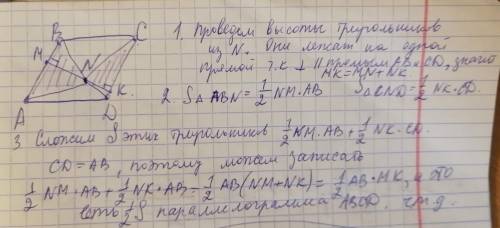 B C
M
N
K
A D
1. Проведем высоты треугольников
из N. Они лежат на одной
прямой т.к ⊥ ‖ прямым AB и CD, значит
MK=MN+NK
2. S△ABN = 1/2 NM·AB S△CND = 1/2 NK·CD.
3 Сложим S этих треугольников 1/2 NM·AB + 1/2 NK·CD.
CD = AB, поэтому можем записать
1/2 NM·AB + 1/2 NK·AB = 1/2 AB(NM+NK) = 1/2 AB·MK, а это
есть 1/2 S параллелограмма ABCD. чтд.